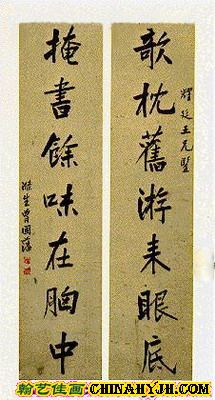 欹枕舊游来眼底
掩書餘味在胸中
滌生曾國藩
翰艺佳画:CHINAHYJH.COM